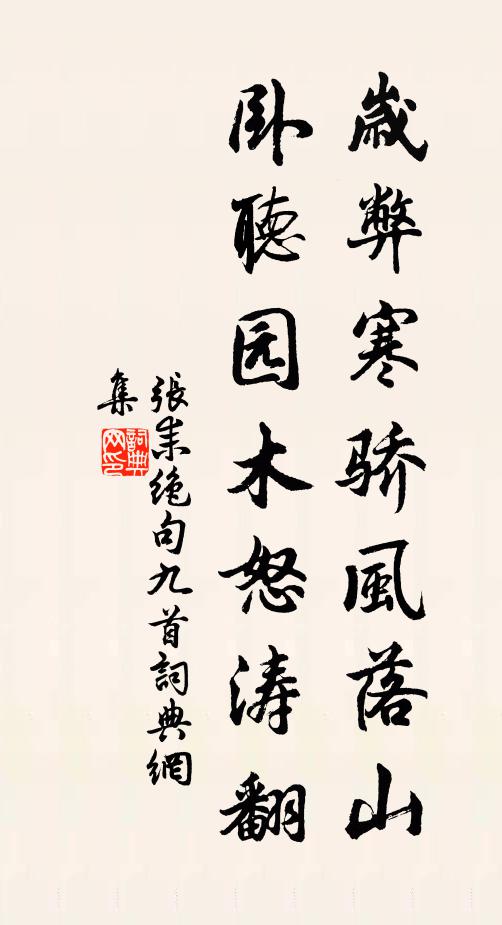 歲弊寒骄風落山
卧聴园木怒涛翻
張耒絶句九首詞典網
集
詞典
网印